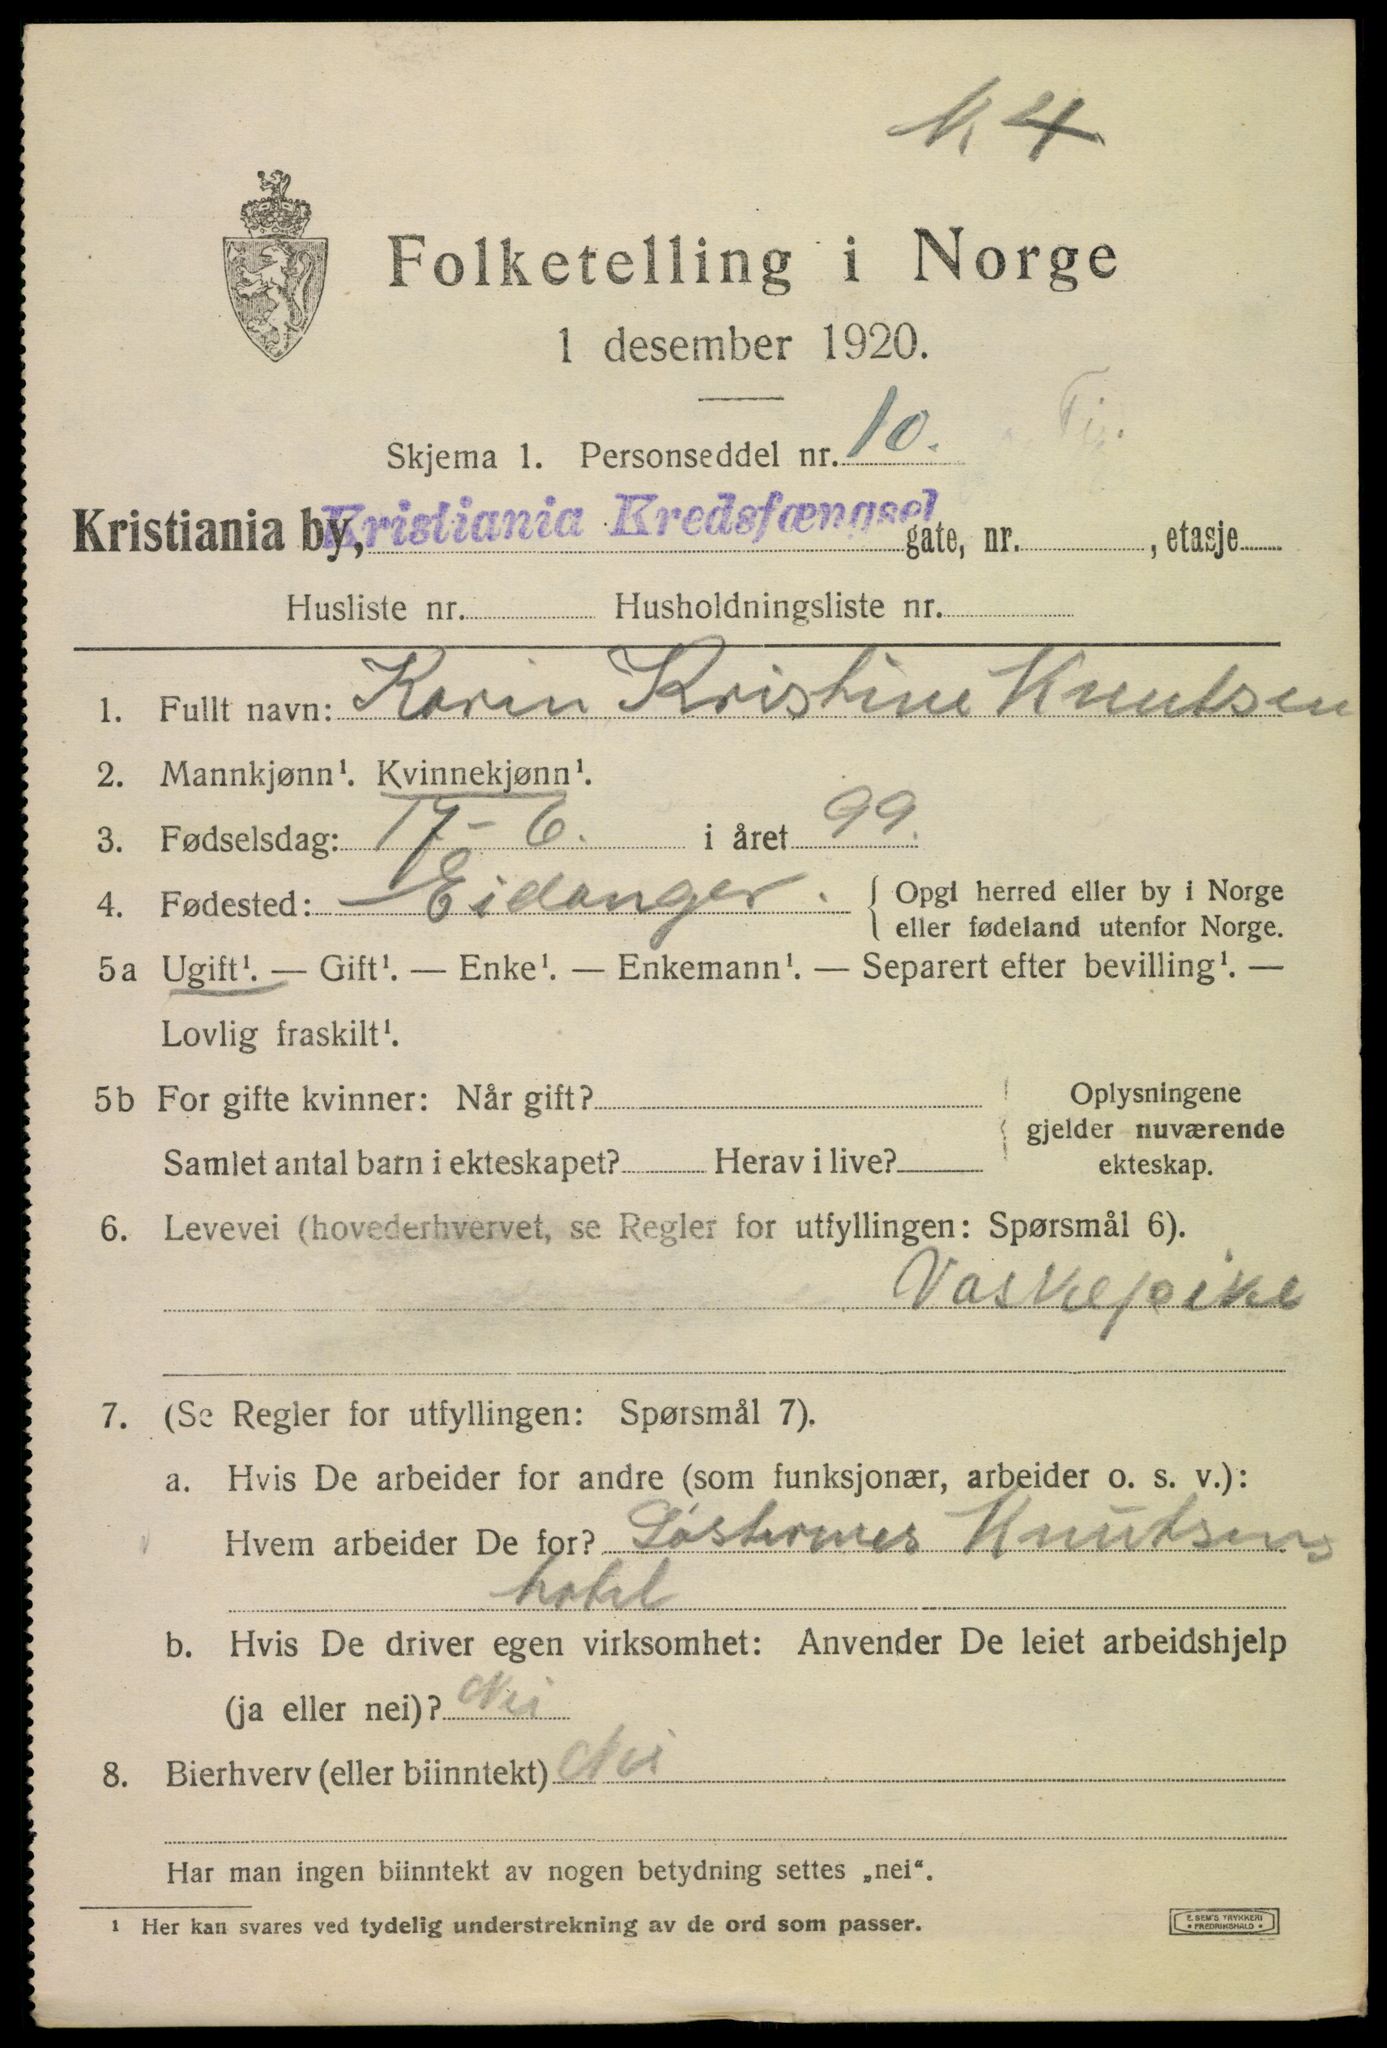 K 4
Folketelling i Norge
1 desember 1920.
Skjema 1. Personseddel nr. 10.
Kristiania by, Kristiania Kredsfængsel gate, nr. , etasje
Husliste nr. Husholdningsliste nr.
1. Fullt navn: Karin Kristine Knutsen
2. Mannkjønn¹. Kvinnekjønn¹.
3. Fødselsdag: 17-6. i året 99.
4. Fødested: Eidanger. { Opgi herred eller by i Norge
eller fødeland utenfor Norge.
5a Ugift¹. — Gift¹. — Enke¹. — Enkemann¹. — Separert efter bevilling¹. —
Lovlig fraskilt¹.
5b For gifte kvinner: Når gift? Oplysningene
gjelder nuværende
Samlet antal barn i ekteskapet? Herav i live? ekteskap.
6. Levevei (hovederhvervet, se Regler for utfyllingen: Spørsmål 6).
Vaskepike
7. (Se Regler for utfyllingen: Spørsmål 7).
a. Hvis De arbeider for andre (som funksjonær, arbeider o. s. v.):
Hvem arbeider De for? Søstrenes Knutsens
hotel
b. Hvis De driver egen virksomhet: Anvender De leiet arbeidshjelp
(ja eller nei)? Nei
8. Bierhverv (eller biinntekt) Nei
Har man ingen biinntekt av nogen betydning settes „nei“.
¹ Her kan svares ved tydelig understrekning av de ord som passer.
E. SEM'S TRYKKERI
FREDRIKSHALD